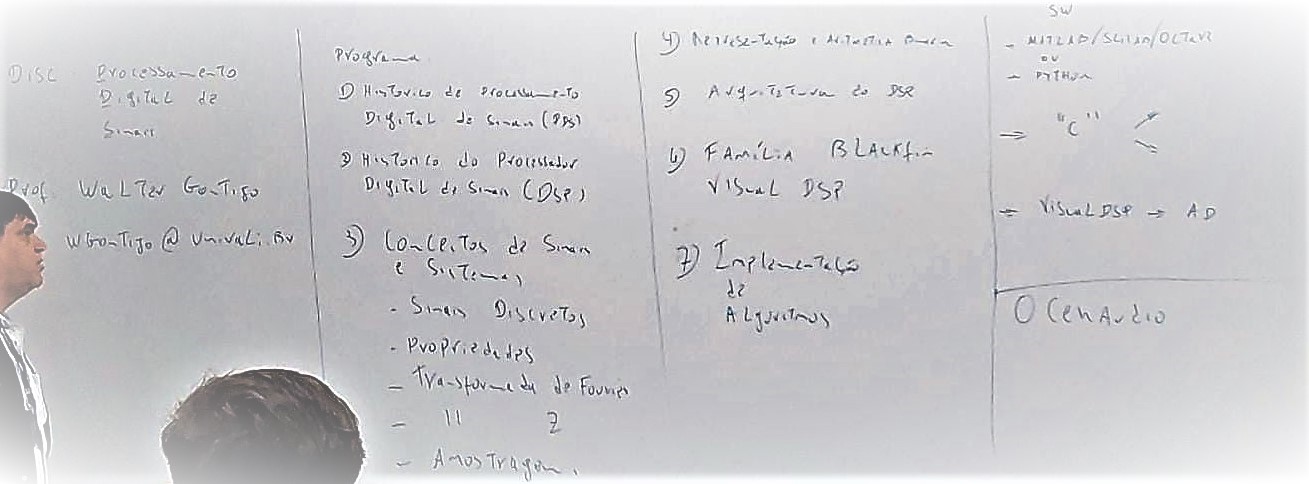 DISC Processamento
Digital de
Sinais
Prof. Walter Gontijo
wgontijo@univali.br
Programa
1) Historico de Processamento
Digital de Sinais (PDS)
2) Historico do Processador
Digital de Sinais (DSP)
3) Conceitos de Sinais
e Sistemas
- Sinais Discretos
- Propriedades
- Transformada de Fourier
- 11 Z
- Amostragem
4) Representação e Aritmetica
5) Arquitetura do DSP
6) FAMÍLIA BLACKfin
VISUAL DSP
7) Implementação
de
Algoritmos
SW
- MATLAB/SCILAB/OCTAVE
OU
- PYTHON
→ "C"
→ VISUAL DSP → AD
OCENAUDIO